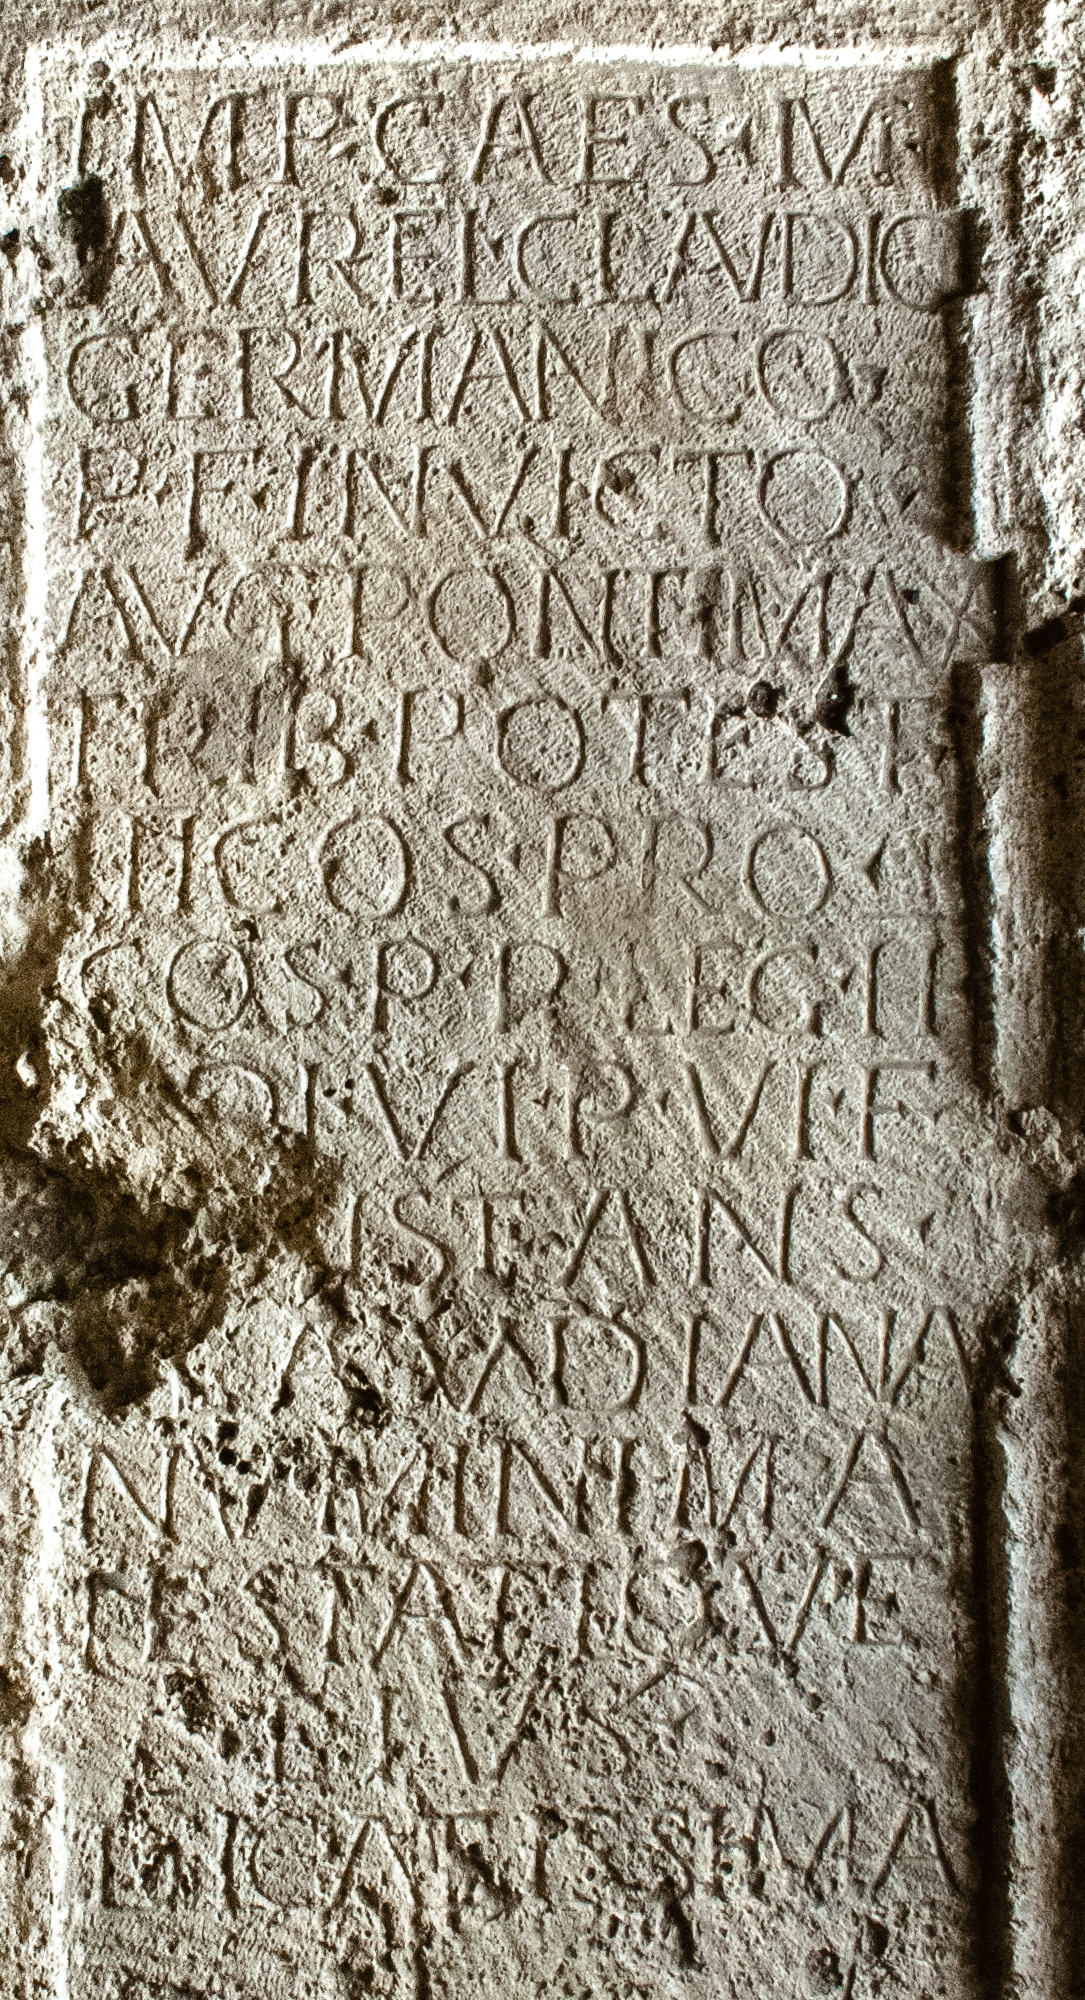 IMP·CAES·M·
AVREL·CLAVDIO
GERMANICO·
P·F·INVICTO
AVG·PONTIF·MAX
TRIB·POTEST
III·COS·PRO·
COS·P·P·LEG·II
VI·P·VI·F·
STANS·
CLAVDIANA
NVMINI·MA
IESTATIQVE
EIVS
DICATISSIMA